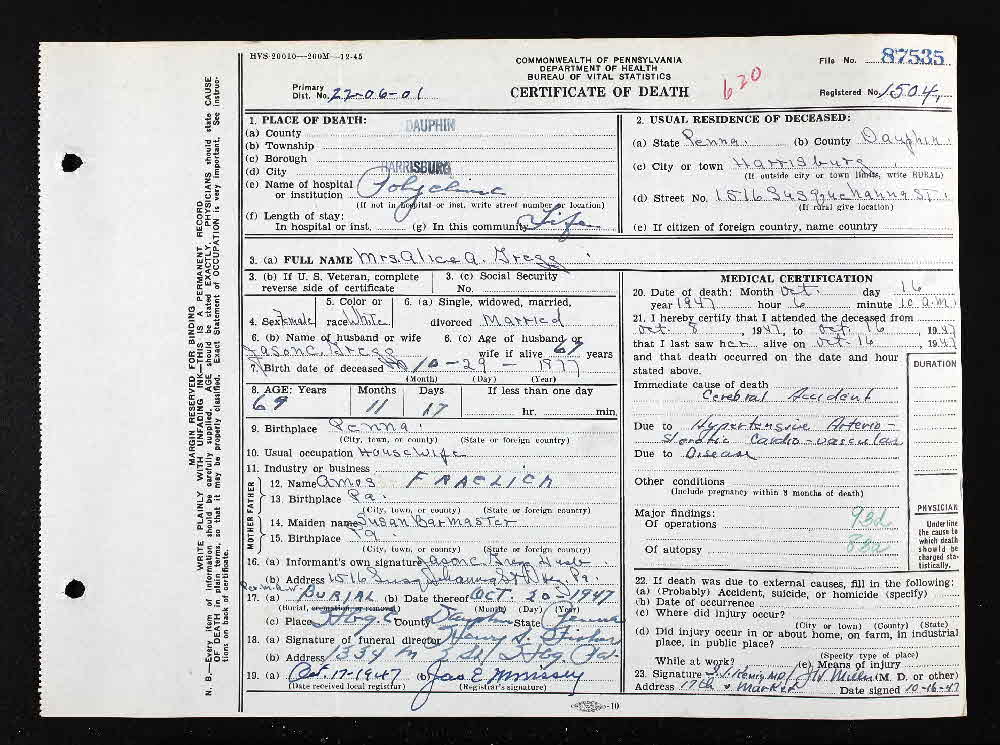 HVS-20010—200M—12-45
COMMONWEALTH OF PENNSYLVANIA
DEPARTMENT OF HEALTH
BUREAU OF VITAL STATISTICS
CERTIFICATE OF DEATH
File No. 87535
620
Primary Dist. No. 22-06-01
Registered No. 1504
MARGIN RESERVED FOR BINDING
WRITE PLAINLY WITH UNFADING INK—THIS IS A PERMANENT RECORD
N. B.—Every item of information should be carefully supplied. AGE should be stated EXACTLY. PHYSICIANS should state CAUSE
OF DEATH in plain terms, so that it may be properly classified. Exact Statement of OCCUPATION is very important. See instruc-
tions on back of certificate.
1. PLACE OF DEATH:
(a) County DAUPHIN
(b) Township
(c) Borough
(d) City HARRISBURG
(e) Name of hospital or institution Polyclinic
(If not in hospital or inst. write street number or location)
(f) Length of stay:
In hospital or inst. (g) In this community Life
2. USUAL RESIDENCE OF DECEASED:
(a) State Penna. (b) County Dauphin
(c) City or town Harrisburg
(If outside city or town limits, write RURAL)
(d) Street No. 1516 Susquehanna St.
(If rural give location)
(e) If citizen of foreign country, name country
3. (a) FULL NAME Mrs Alice A. Gregg
3. (b) If U. S. Veteran, complete reverse side of certificate
3. (c) Social Security No.
4. Sex Female
5. Color or race White
6. (a) Single, widowed, married, divorced Married
6. (b) Name of husband or wife Jason C. Gregg
6. (c) Age of husband or wife if alive 69 years
7. Birth date of deceased 10-29-1877
(Month) (Day) (Year)
8. AGE: Years Months Days If less than one day
69 11 17 hr. min.
9. Birthplace Penna.
(City, town, or county) (State or foreign country)
10. Usual occupation Housewife
11. Industry or business
FATHER
12. Name Amos FRAELICH
13. Birthplace Pa.
(City, town, or county) (State or foreign country)
MOTHER
14. Maiden name Susan Barmaster
15. Birthplace Pa.
(City, town, or county) (State or foreign country)
16. (a) Informant's own signature Jason C. Gregg
(b) Address 1516 Susquehanna St Hbg. Pa.
17. (a) BURIAL (b) Date thereof OCT. 20-1947
(Burial, cremation or removal) (Month) (Day) (Year)
(c) Place Hbg. County Dauphin State Penna
18. (a) Signature of funeral director Harry
(b) Address 1334 N 2 St. Hbg. Pa.
19. (a) Oct. 17-1947 (b) Jas E Morrissey
(Date received local registrar) (Registrar's signature)
MEDICAL CERTIFICATION
20. Date of death: Month Oct. day 16
year 1947 hour 6 minute 10 a.m.
21. I hereby certify that I attended the deceased from
Oct. 8, 1947, to Oct. 16 1947
that I last saw her alive on Oct. 16, 1947
and that death occurred on the date and hour
stated above.
DURATION
Immediate cause of death
Cerebral Accident
Due to Hypertensive Arterio-
Sclerotic Cardio-vascular
Due to Disease
Other conditions
(Include pregnancy within 3 months of death)
Major findings:
Of operations 93d
Of autopsy 83a
PHYSICIAN
Underline
the cause to
which death
should be
charged sta-
tistically.
22. If death was due to external causes, fill in the following:
(a) (Probably) Accident, suicide, or homicide (specify)
(b) Date of occurrence
(c) Where did injury occur?
(City or town) (County) (State)
(d) Did injury occur in or about home, on farm, in industrial
place, in public place?
(Specify type of place)
While at work? (e) Means of injury
23. Signature (M. D. or other)
Address 17th & Market Date signed 10-16-47
10